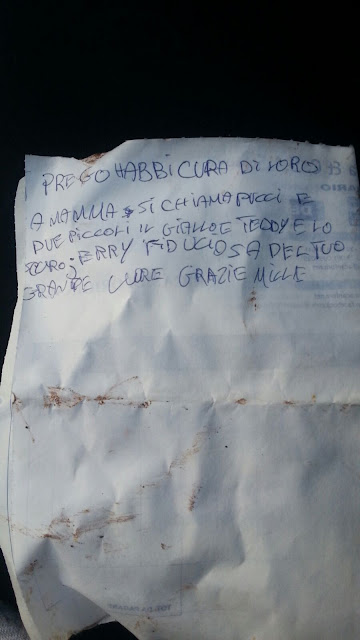 PREGO HABBI CURA DI LORO
A MAMMA SI CHIAMA PUCCI E
DUE PICCOLI IL GIALLO E TEDDY E LO
SCURO JERRY FIDUCIOSA DEL TUO
GRANDE CUORE GRAZIE MILLE